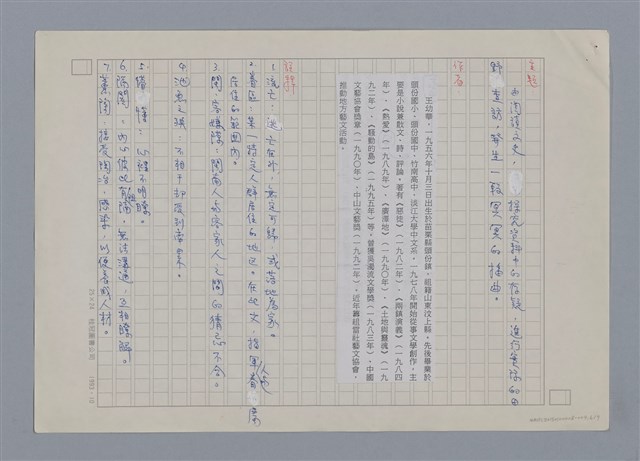 主題
由閱讀文史，探究資料中的存疑，進行實際的田
野查訪，發生一段冥冥的插曲。
作者
王幼華，一九五六年十月三日出生於苗栗縣頭份鎮，祖籍山東汶上縣。先後畢業於
頭份國小、頭份國中、竹南高中、淡江大學中文系。一九七八年開始從事文學創作，主
要是小說兼散文、詩、評論。著有《惡徒》（一九八二年）、《兩鎮演義》（一九八四
年）、《熱愛》（一九八九年）、《廣澤地》（一九九〇年）、《土地與靈魂》（一九
九二年）、《騷動的島》（一九九五年）等。曾獲吳濁流文學獎（一九八三年）、中國
文藝協會獎章（一九九〇年）、中山文藝獎（一九九二年）。近年籌組雷社藝文協會，
推動地方藝文活動。
註釋
1. 流亡：逃亡在外，無定可歸，或落地為家。
2. 眷區：某一特定人群居住的地區。在此文，指軍眷
居住的範圍內。
3. 閩、客嫌隙：閩南人與客家人之間的猜忌不合。
4. 池魚之殃：不相干却受到牽累。
5. 懵懂：心裡不明瞭。
6. 隔閡：內心彼此有隔，無法溝通，互相瞭解。
7. 薰陶：接受陶冶，歷練，以便養成人材。
25×24
1993.10